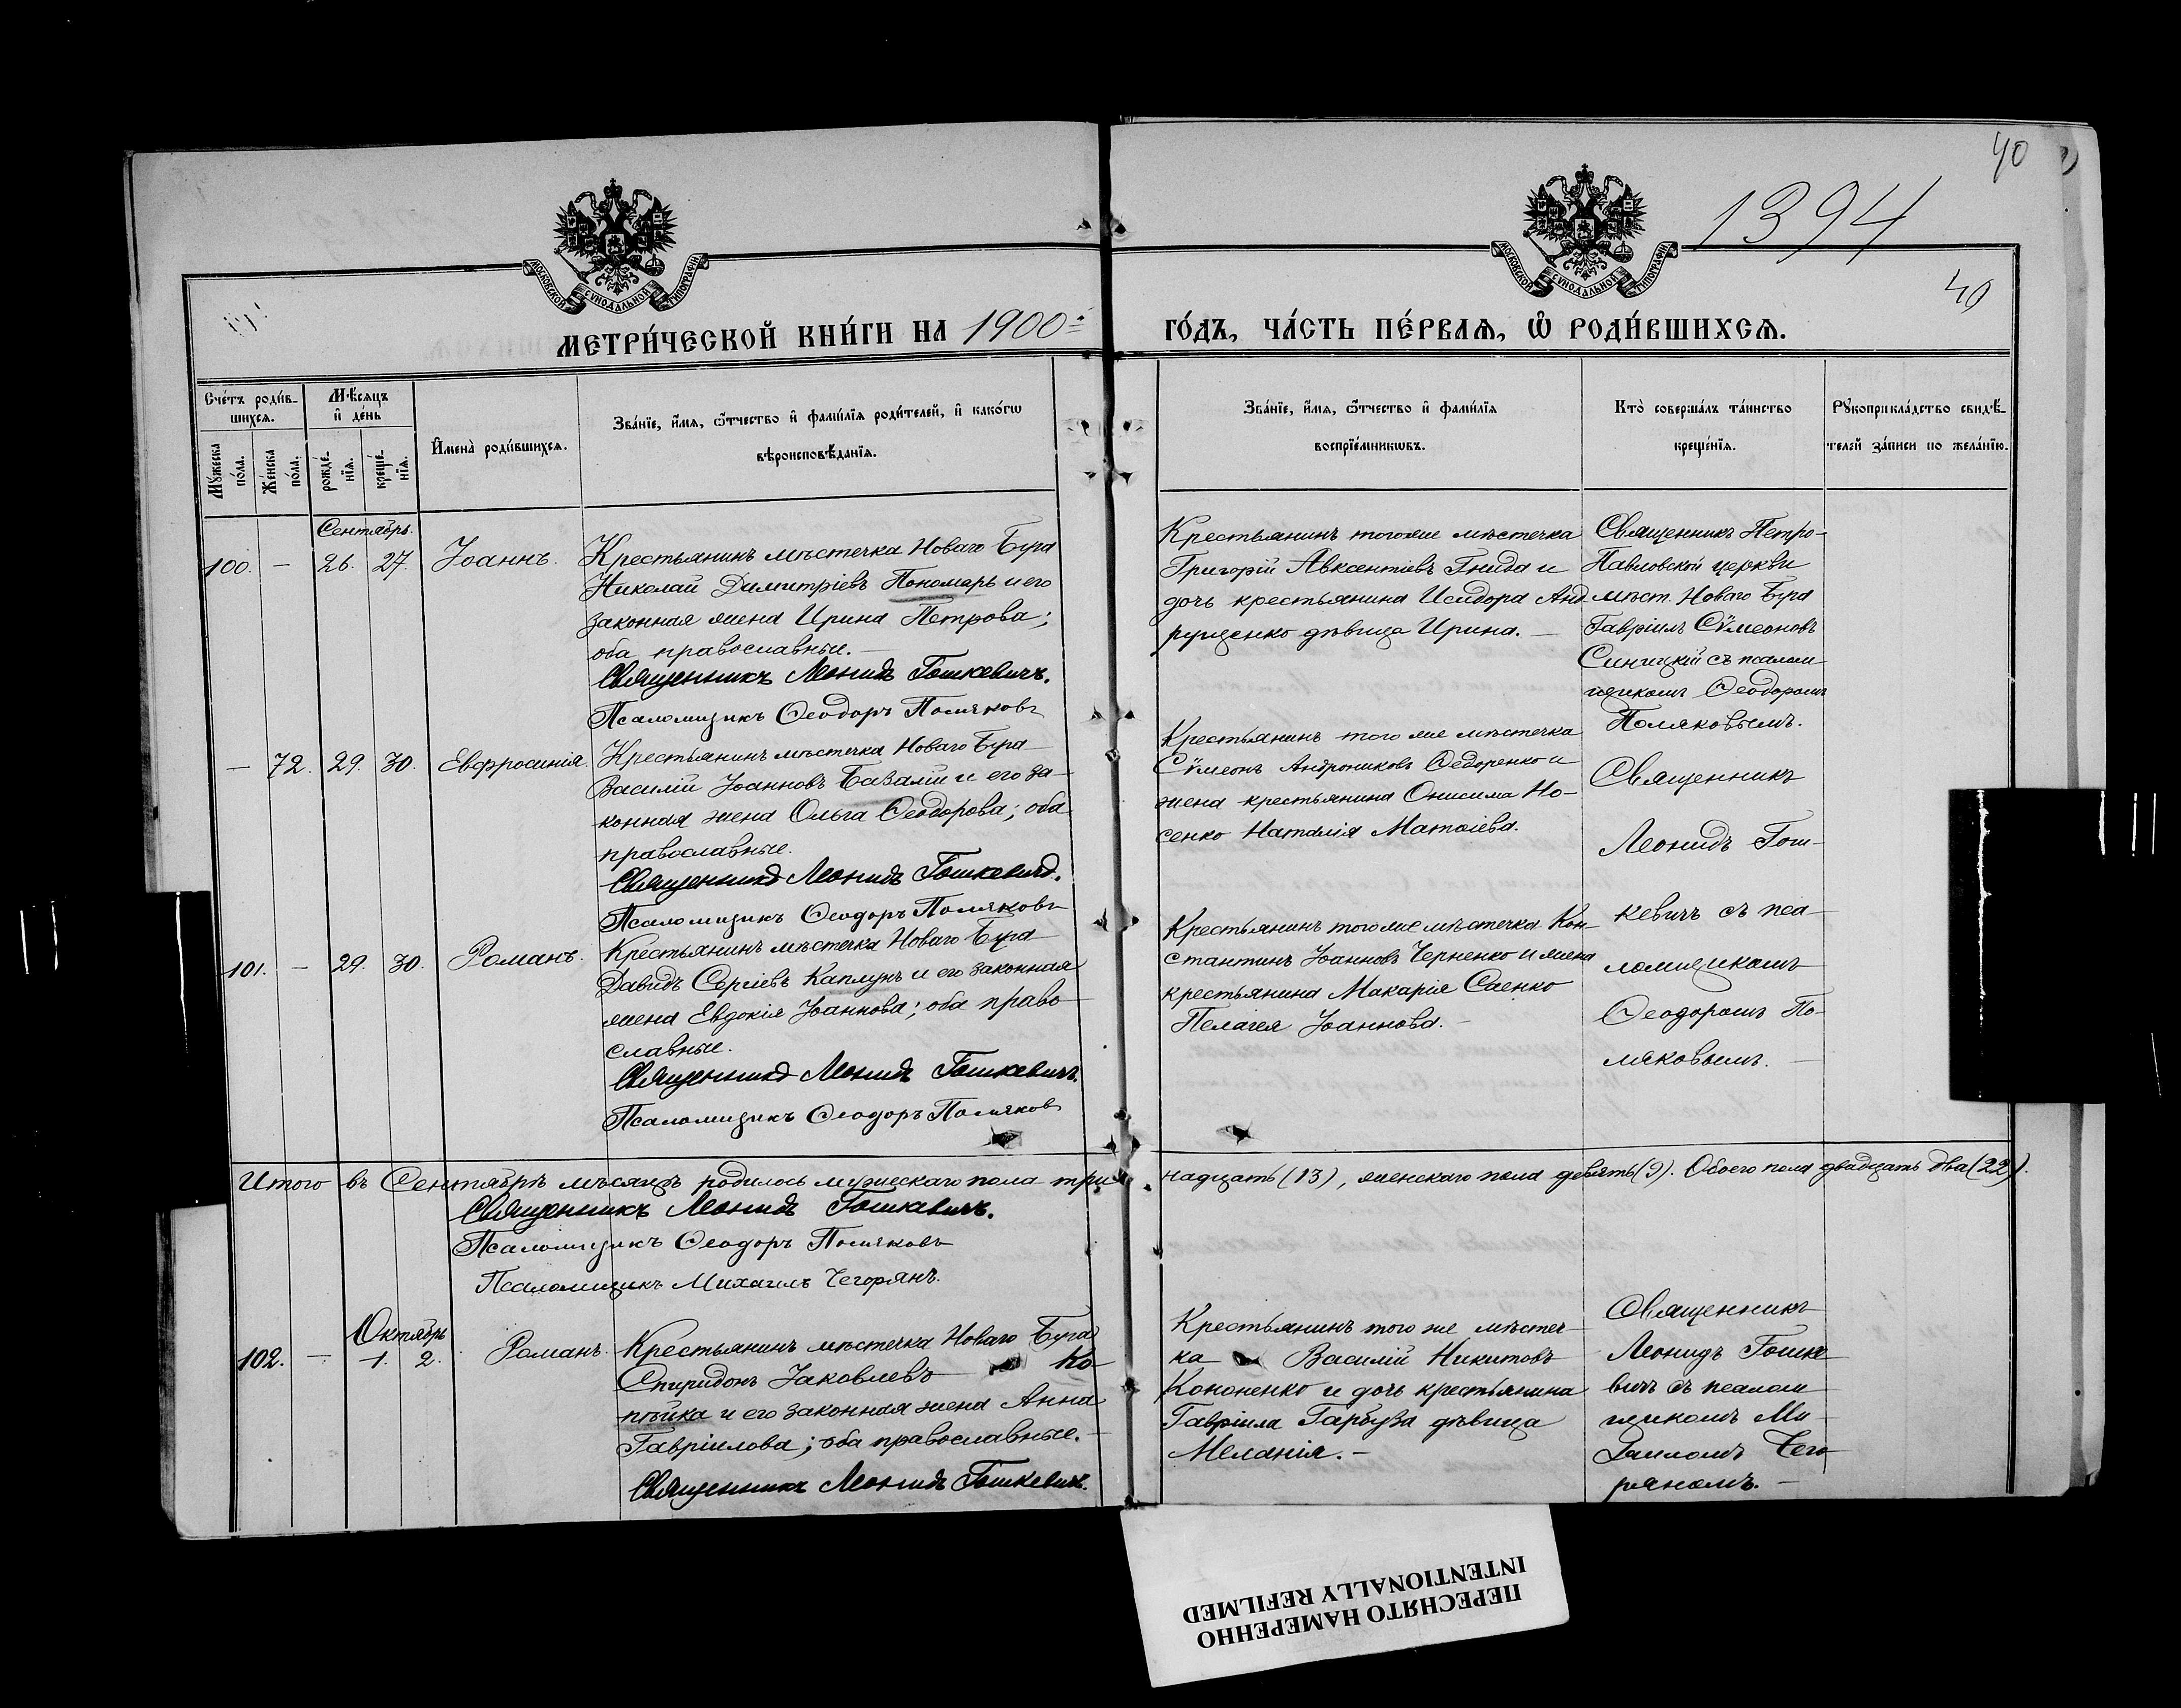 40
1394
40
МОСКОВСКОЙ СѴНОДАЛЬНОЙ ТИПОГРАФІИ
МОСКОВСКОЙ СѴНОДАЛЬНОЙ ТИПОГРАФІИ
МЕТРИ́ЧЕСКОЙ КНИ́ГИ НА 1900
ГО́ДЪ, ЧА́СТЬ ПЕ́РВАѦ, Ѡ҆ РОДИ́ВШИХСѦ.
Сче́тъ роди́в-
шихсѧ.
Мꙋ́жеска по́ла.
Же́нска по́ла.
Мѣ́сѧцъ
и҆ де́нь
рожде́-нїѧ.
креще́-нїѧ.
И҆мена̀ роди́вшихсѧ.
Зва́нїе, и҆́мѧ, ѻ҆́тчество и҆ фамі́лїѧ роди́телей, и҆ како́гѡ
вѣроисповѣ́данїѧ.
Зва́нїе, и҆́мѧ, ѻ҆́тчество и҆ фамі́лїѧ
воспрїе́мникѡвъ.
Кто̀ соверша́лъ та́инство
креще́нїѧ.
Рꙋкоприкла́дство свидѣ́-
телей за́писи по жела́нїю.
Сентябрь.
100. — 26. 27. Іоаннъ.
Крестьянинъ мѣстечка Новаго Буга
Николай Димитріевъ Пономарь и его
законная жена Ирина Петрова;
оба православные. —
Священникъ Леонидъ Гошкевичъ.
Псаломщикъ Ѳеодоръ Поляковъ
Крестьянинъ того же мѣстечка
Григорій Авксентіевъ Гнида и
дочь крестьянина Исидора Анд-
рущенко дѣвица Ирина. —
Священникъ Петро-
Павловской церкви
мѣст. Новаго Буга
Гавріилъ Сѵмеоновъ
Синицкій съ псалом
щикомъ Ѳеодоромъ
Поляковымъ.
— 72. 29. 30. Евфросинія.
Крестьянинъ мѣстечка Новаго Буга
Василій Іоанновъ Базалій и его за-
конная жена Ольга Ѳеодорова; оба
православные.
Священникъ Леонидъ Гошкевичъ.
Псаломщикъ Ѳеодоръ Поляковъ
Крестьянинъ того же мѣстечка
Сѵмеонъ Андрониковъ Ѳедоренко и
жена крестьянина Онисима Но-
сенко Наталія Матѳіева.
Священникъ
Леонидъ Гош-
кевичъ съ пса-
ломщикомъ
Ѳеодоромъ По-
ляковымъ. —
101. — 29. 30. Романъ.
Крестьянинъ мѣстечка Новаго Буга
Давидъ Сергіевъ Каплунъ и его законная
жена Евдокія Іоаннова; оба право-
славные.
Священникъ Леонидъ Гошкевичъ.
Псаломщикъ Ѳеодоръ Поляковъ
Крестьянинъ того же мѣстечка Кон-
стантинъ Іоанновъ Черненко и жена
крестьянина Макарія Саенко
Пелагея Іоаннова. —
Итого въ Сентябрѣ мѣсяцѣ родилось мужескаго пола три-
надцать (13), женскаго пола девять (9). Обоего пола двадцать два (22).
Священникъ Леонидъ Гошкевичъ.
Псаломщикъ Ѳеодоръ Поляковъ
Псаломщикъ Михаилъ Чегорянъ.
Октябрь
102. — 1. 2. Романъ.
Крестьянинъ мѣстечка Новаго Буга
Спиридонъ Іаковлевъ Ко-
пѣйка и его законная жена Анна
Гавріилова; оба православные. —
Священникъ Леонидъ Гошкевичъ.
Крестьянинъ того же мѣстеч-
ка Василій Никитовъ
Кононенко и дочь крестьянина
Гавріила Гарбуза дѣвица
Меланія. —
Священникъ
Леонидъ Гошке-
вичъ съ псалом-
щикомъ Ми-
хаиломъ Чего-
ряномъ. —
ПЕРЕСНЯТО НАМЕРЕННО
INTENTIONALLY REFILMED